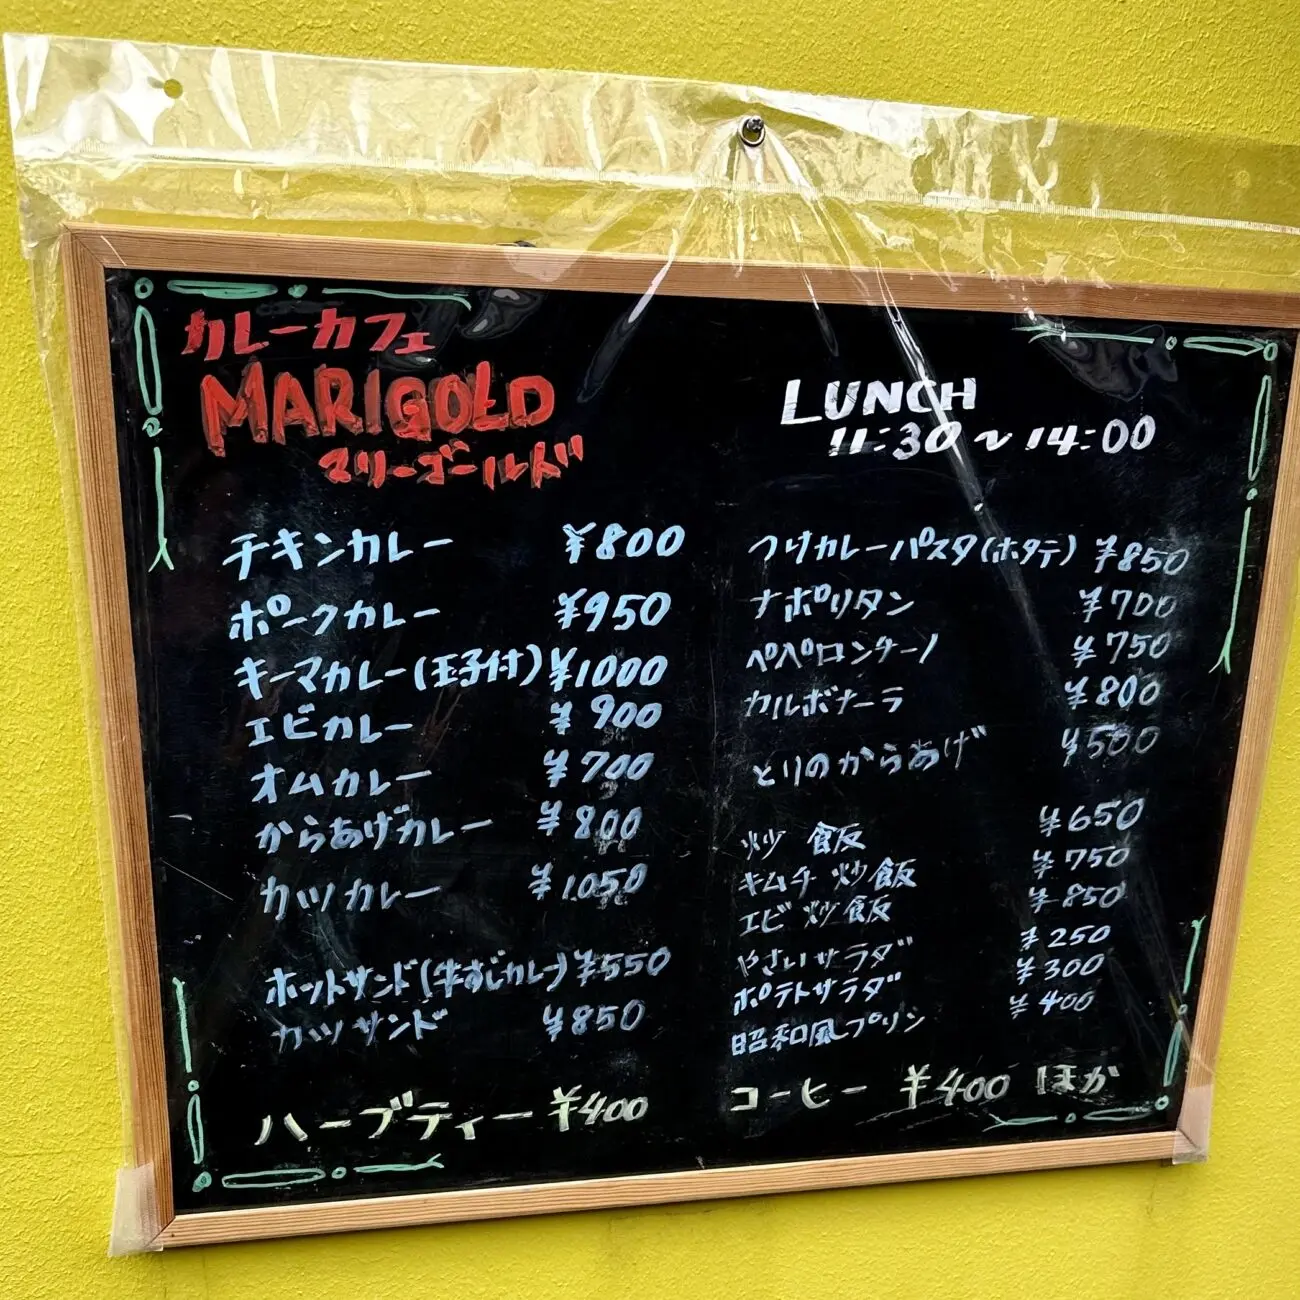 カレーカフェ
MARIGOLD
マリーゴールド
チキンカレー ¥800
ポークカレー ¥950
キーマカレー(玉子付) ¥1000
エビカレー ¥900
オムカレー ¥700
からあげカレー ¥800
カツカレー ¥1050
ホットサンド(牛すじカレー) ¥550
カツサンド ¥850
ハーブティー ¥400
LUNCH
11:30〜14:00
つけカレーパスタ(ホタテ) ¥850
ナポリタン ¥700
ペペロンチーノ ¥750
カルボナーラ ¥800
とりのからあげ ¥500
炒飯 ¥650
キムチ炒飯 ¥750
エビ炒飯 ¥850
やさいサラダ ¥250
ポテトサラダ ¥300
昭和風プリン ¥400
コーヒー ¥400 ほか